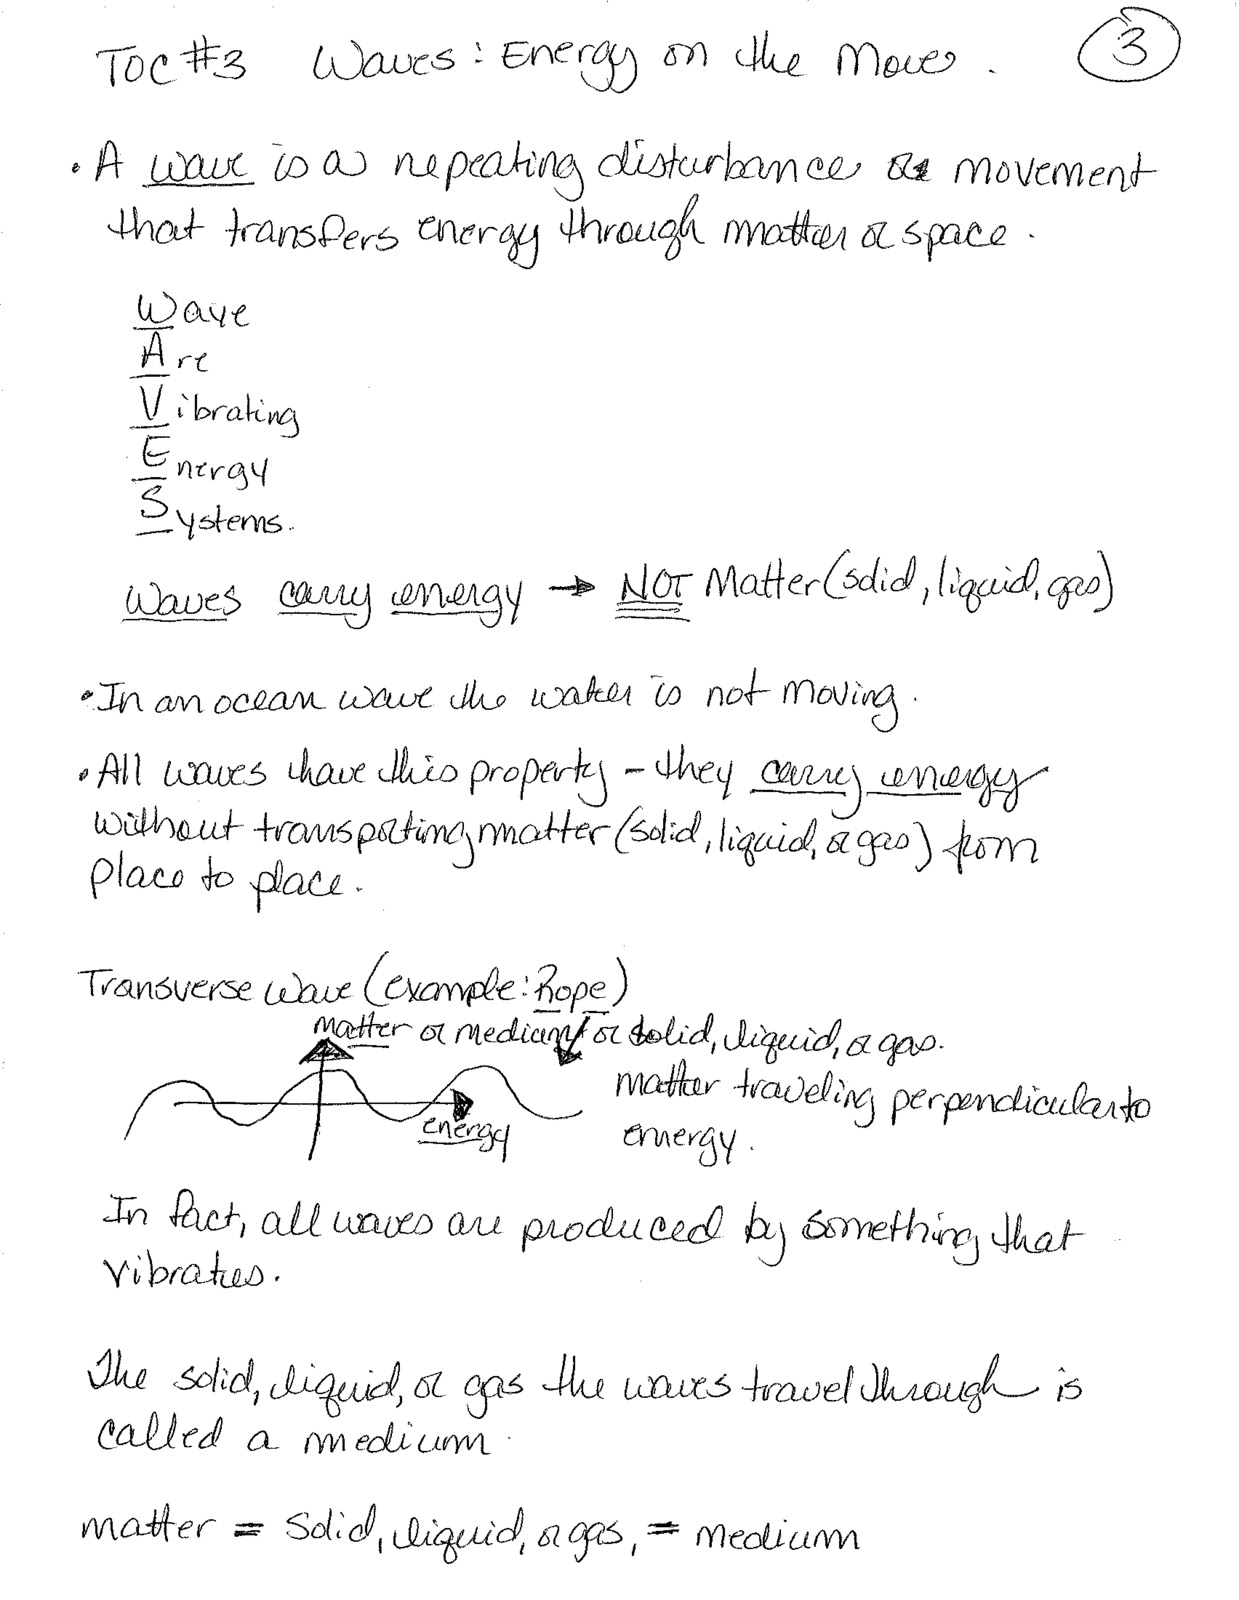 TOC #3 Waves: Energy on the Move. 3
• A wave is a repeating disturbance or movement
that transfers energy through matter or space.
Wave
Are
Vibrating
Energy
Systems.
Waves carry energy → NOT Matter (solid, liquid, gas)
• In an ocean wave the water is not moving.
• All waves have this property - they carry energy
without transporting matter (solid, liquid, or gas) from
place to place.
Transverse Wave (example: Rope)
matter or medium or solid, liquid, or gas.
matter traveling perpendicular to
energy.
energy
In fact, all waves are produced by something that
vibrates.
The solid, liquid, or gas the waves travel through is
called a medium.
matter = solid, liquid, or gas, = medium